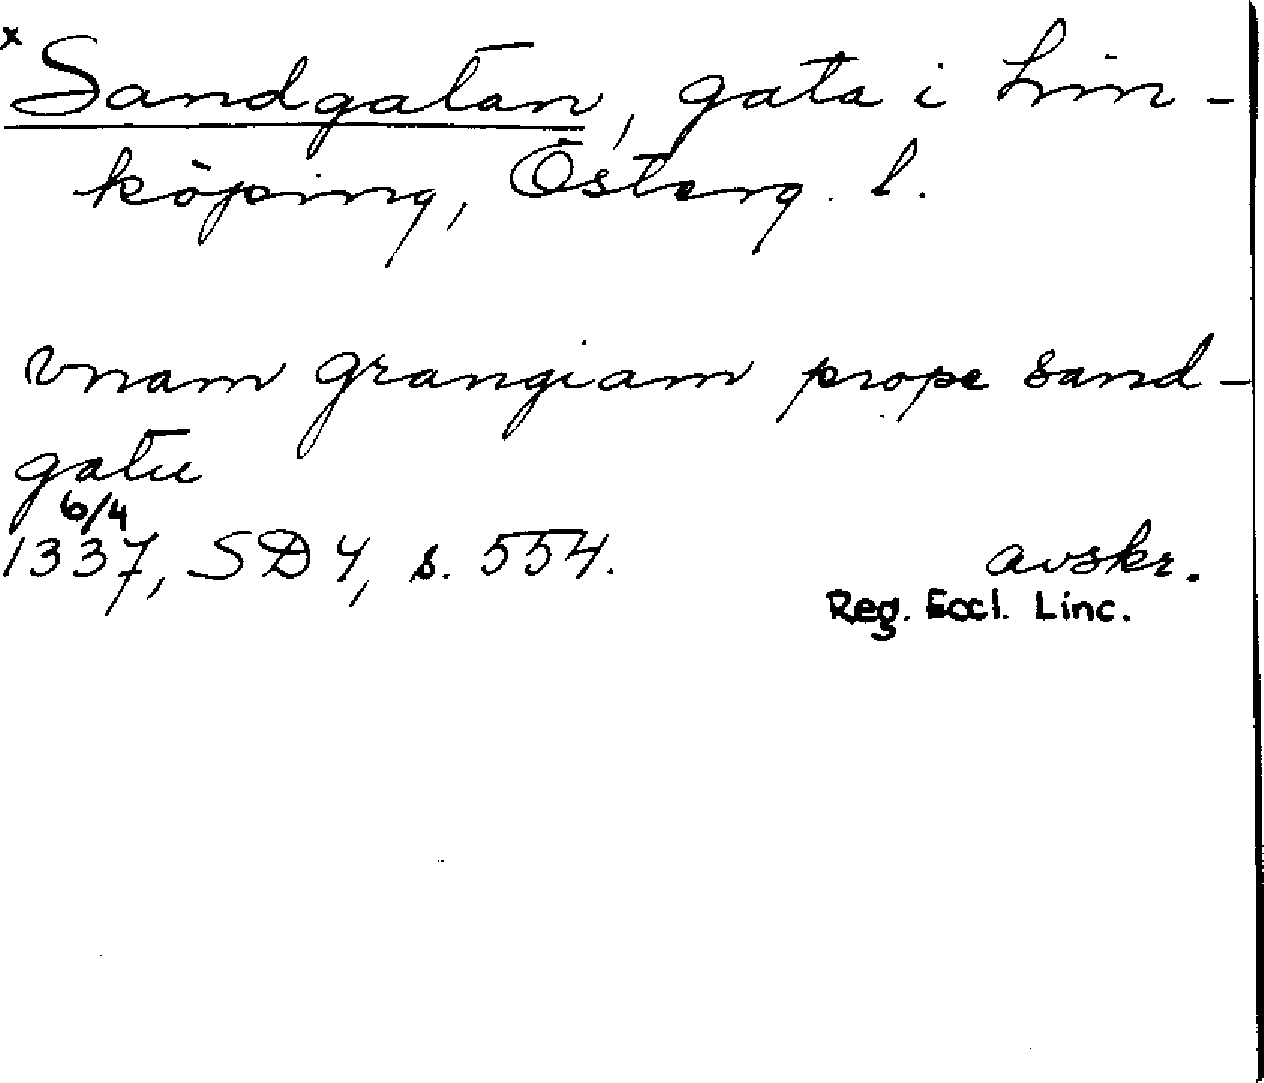 x Sandgatan, gata i Lin-
köping, Österg. l.
vnam grangiam prope sand-
gatu
6/4
1337, SD 4, s. 554. avskr.
Reg. Eccl. Linc.